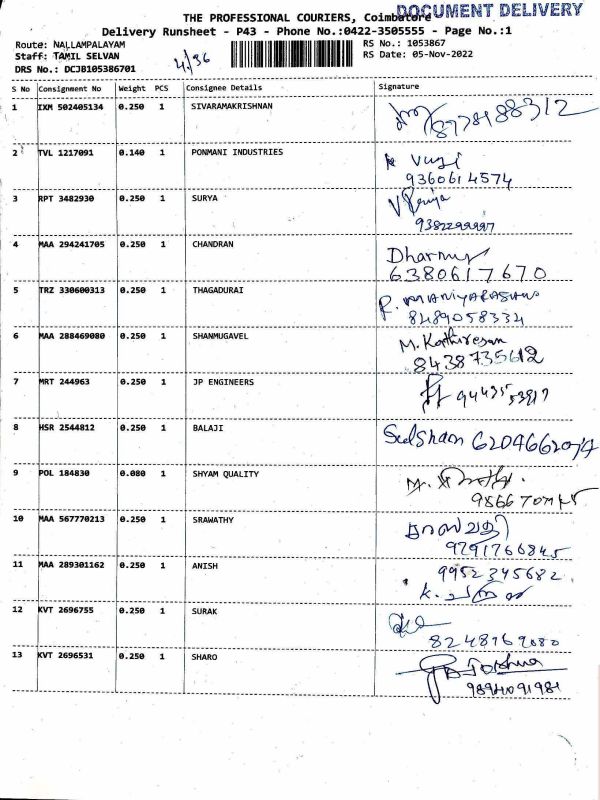 DOCUMENT DELIVERY
THE PROFESSIONAL COURIERS, Coimbatore
Delivery Runsheet - P43 - Phone No.:0422-3505555 - Page No.:1
Route: NALLAMPALAYAM RS No.: 1053867
Staff: TAMIL SELVAN RS Date: 05-Nov-2022
DRS No.: DCJB105386701 4/36
S No Consignment No Weight PCS Consignee Details Signature
1 IXM 502405134 0.250 1 SIVARAMAKRISHNAN
8778188312
2 TVL 1217091 0.140 1 PONMANI INDUSTRIES
9360614574
3 RPT 3482930 0.250 1 SURYA
4 MAA 294241705 0.250 1 CHANDRAN
6380617670
5 TRZ 330600313 0.250 1 THAGADURAI
8489058334
6 MAA 288469080 0.250 1 SHANMUGAVEL M. Kathiresan
7 MRT 244963 0.250 1 JP ENGINEERS
8 HSR 2544812 0.250 1 BALAJI
9 POL 184830 0.080 1 SHYAM QUALITY
10 MAA 567770213 0.250 1 SRAWATHY
9791766845
11 MAA 289301162 0.250 1 ANISH 9952345682
12 KVT 2696755 0.250 1 SURAK
8248769080
13 KVT 2696531 0.250 1 SHARO
9894091981